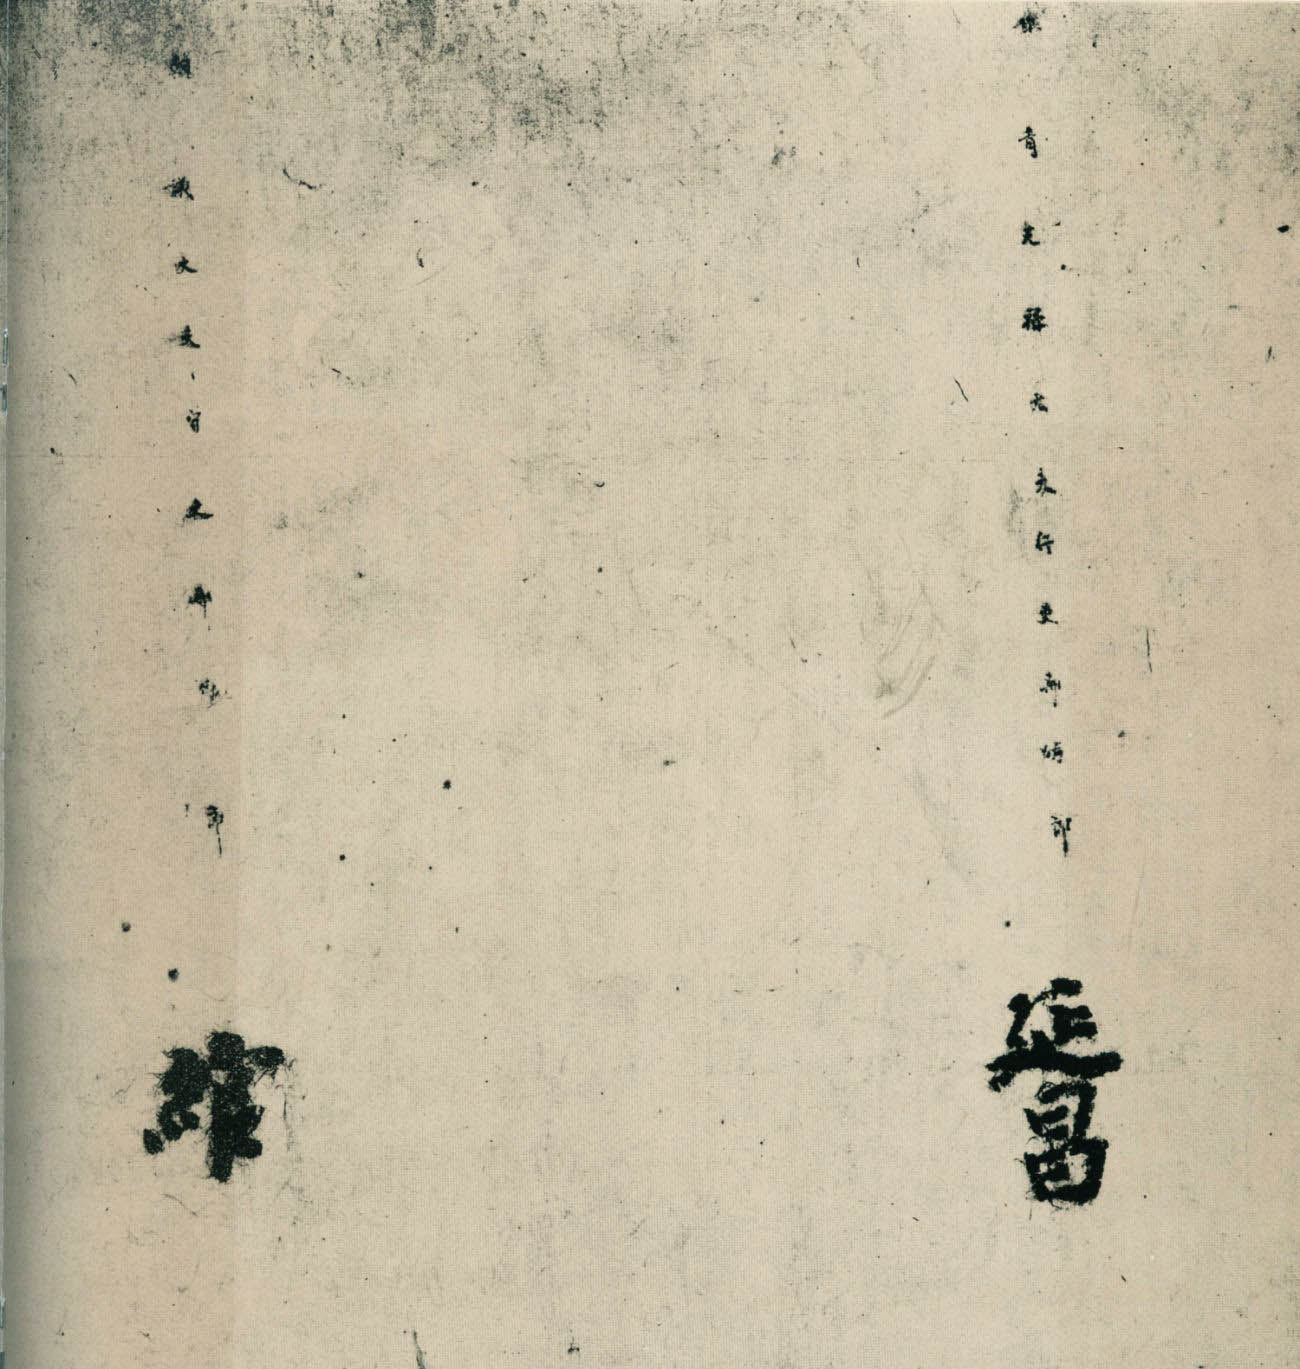 銀青光祿大夫行吏部侍郎延昌
朝議大夫守吏部侍郎綰